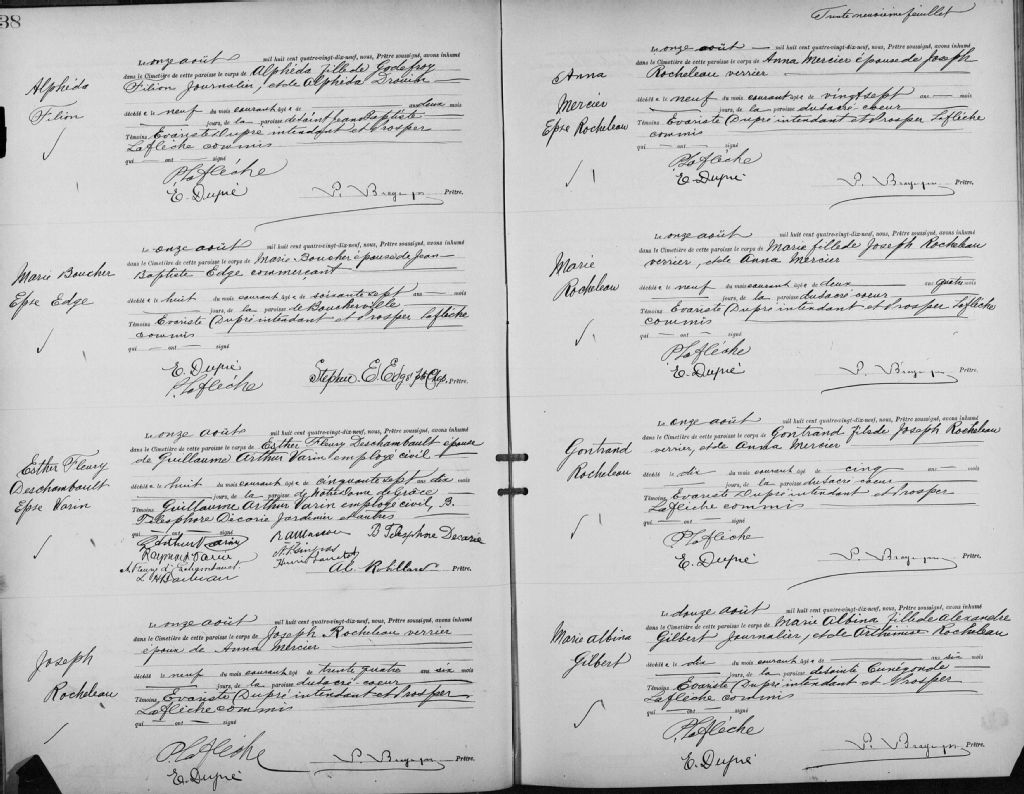 38
Alphéda
Filion
Le onze août mil huit cent quatre-vingt-dix-neuf, nous, Prêtre soussigné, avons inhumé
dans le Cimetière de cette paroisse le corps de Alphéda fille de Godefroy
Filion Journalier, et de Alphéda Drouin
décédée le neuf du mois courant âgée de ans deux mois
jours, de la paroisse de saint Jean Baptiste
Témoins Evariste Dupré intendant et Prosper
Laflèche commis
qui — ont — signé
P. Laflèche
E. Dupré
Prêtre.
Marie Boucher
Epse Edge
Le onze août mil huit cent quatre-vingt-dix-neuf, nous, Prêtre soussigné, avons inhumé
dans le Cimetière de cette paroisse le corps de Marie Boucher épouse de Jean
Baptiste Edge commercant
décédée le huit du mois courant âgée de soixante sept ans — mois
jours, de la paroisse de Boucherville
Témoins Evariste Dupré intendant et Prosper Laflèche
commis
qui — ont — signé
E. Dupré
P. Laflèche
Prêtre.
Esther Fleury
Deschambault
Epse Varin
Le onze août mil huit cent quatre-vingt-dix-neuf, nous, Prêtre soussigné, avons inhumé
dans le Cimetière de cette paroisse le corps de Esther Fleury Deschambault épouse
de Guillaume Arthur Varin employé civil
décédée le huit du mois courant âgée de cinquante sept ans dix mois
jours, de la paroisse de Notre Dame de Grâce
Témoins Guillaume Arthur Varin employé civil, B.
Télesphore Décarie Jardinier et autres
qui ont signé
B Télesphore Décarie
Prêtre.
Joseph
Rocheleau
Le onze août mil huit cent quatre-vingt-dix-neuf, nous, Prêtre soussigné, avons inhumé
dans le Cimetière de cette paroisse le corps de Joseph Rocheleau verrier
époux de Anna Mercier
décédé le neuf du mois courant âgé de trente quatre ans six mois
jours, de la paroisse du sacré coeur
Témoins Evariste Dupré intendant et Prosper
Laflèche commis
qui — ont — signé
P. Laflèche
E. Dupré
Prêtre.
Trente neuvième feuillet
Anna
Mercier
Epse Rocheleau
Le onze août — mil huit cent quatre-vingt-dix-neuf, nous, Prêtre soussigné, avons inhumé
dans le Cimetière de cette paroisse le corps de Anna Mercier épouse de Joseph
Rocheleau verrier
décédée le neuf du mois courant âgée de vingt sept ans — mois
jours, de la paroisse du sacré coeur
Témoins Evariste Dupré intendant et Prosper Laflèche
commis
qui — ont — signé
P. Laflèche
E. Dupré
Prêtre.
Marie
Rocheleau
Le onze août mil huit cent quatre-vingt-dix-neuf, nous, Prêtre soussigné, avons inhumé
dans le Cimetière de cette paroisse le corps de Marie fille de Joseph Rocheleau
verrier, et de Anna Mercier
décédée le neuf du mois courant âgée de deux ans quatre mois
jours, de la paroisse du sacré coeur
Témoins Evariste Dupré intendant et Prosper Laflèche
commis
qui — ont — signé
P. Laflèche
E. Dupré
Prêtre.
Gontrand
Rocheleau
Le onze août mil huit cent quatre-vingt-dix-neuf, nous, Prêtre soussigné, avons inhumé
dans le Cimetière de cette paroisse le corps de Gontrand fils de Joseph Rocheleau
verrier, et de Anna Mercier
décédé le dix du mois courant âgé de cinq ans — mois
jours, de la paroisse du sacré coeur
Témoins Evariste Dupré intendant et Prosper
Laflèche commis
qui — ont — signé
P. Laflèche
E. Dupré
Prêtre.
Marie Albina
Gilbert
Le douze août mil huit cent quatre-vingt-dix-neuf, nous, Prêtre soussigné, avons inhumé
dans le Cimetière de cette paroisse le corps de Marie Albina fille de Alexandre
Gilbert Journalier, et de Rocheleau
décédée le dix du mois courant âgée de ans six mois
jours, de la paroisse de sainte Cunégonde
Témoins Evariste Dupré intendant et Prosper
Laflèche commis
qui — ont — signé
P. Laflèche
E. Dupré
Prêtre.